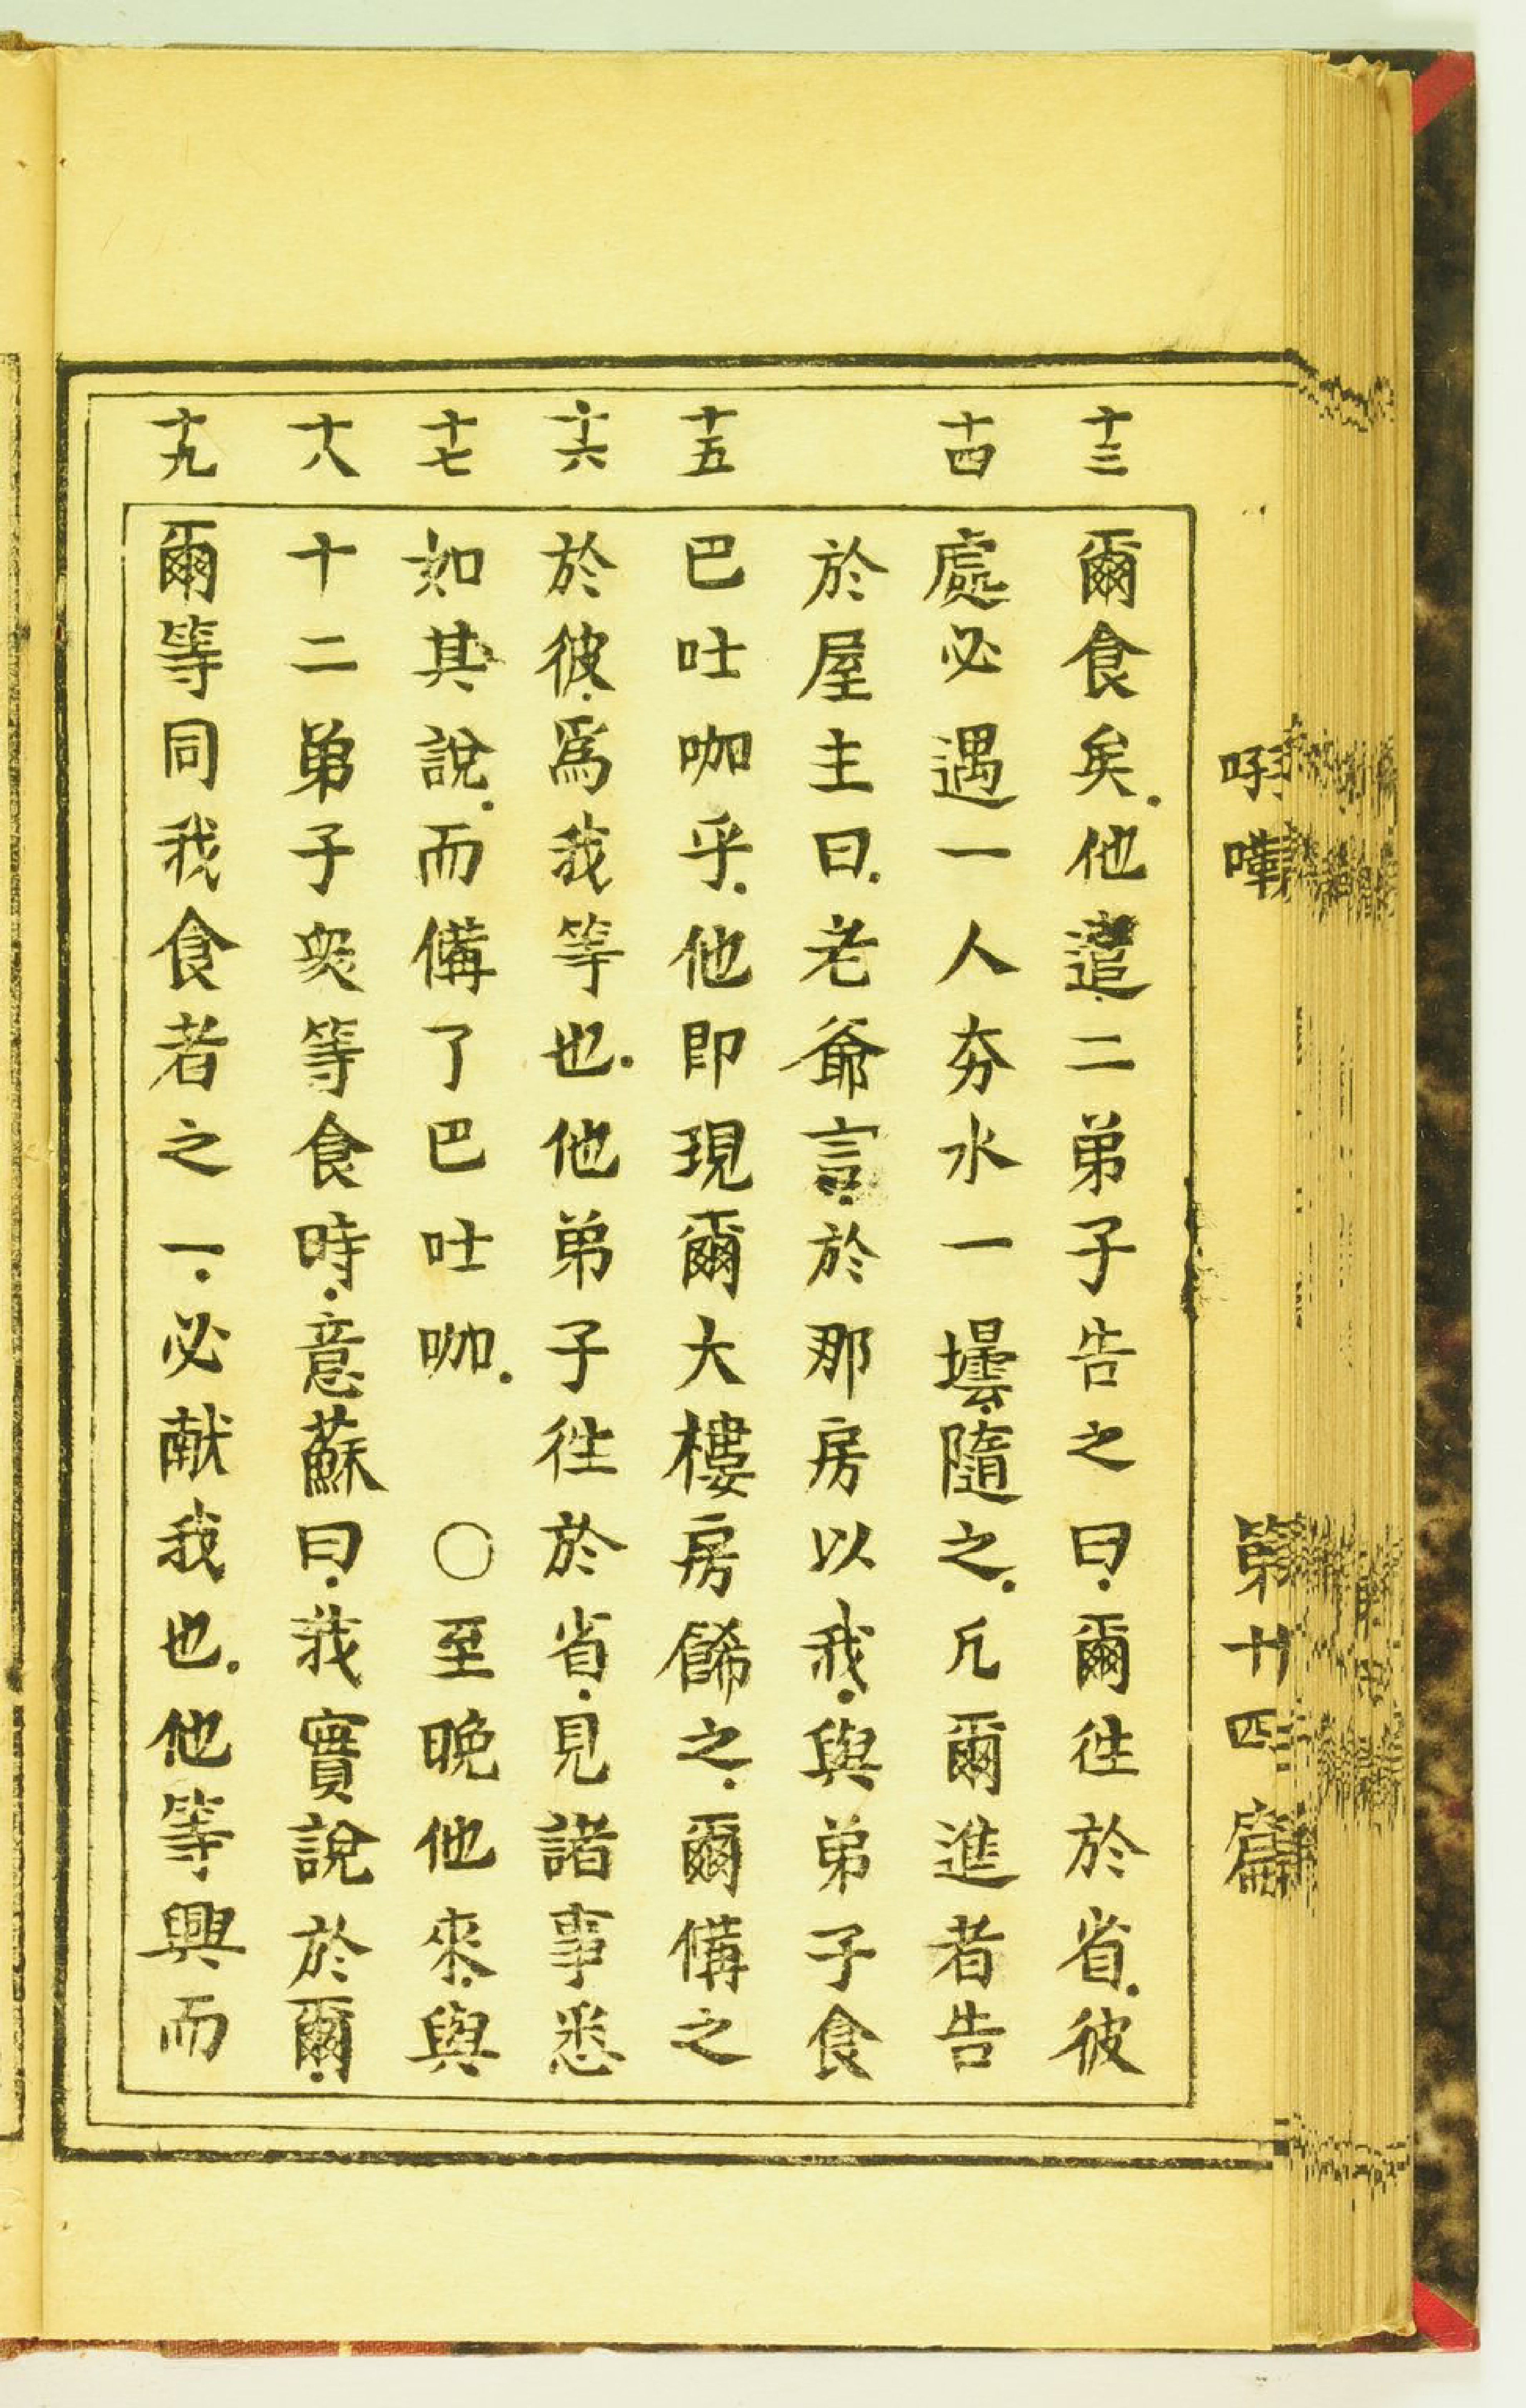 十三 爾食矣.他遣.二弟子告之曰.爾往於省.彼
十四 處必遇一人夯水一壜.隨之.凢爾進者告
於屋主曰.老爺言.於那房以我.與弟子食
十五 巴吐咖乎.他即現爾大樓房餙之.爾備之
十六 於彼.爲我等也.他弟子往於省.見諸事悉
十七 如其說.而備了巴吐咖. ○至晚他來.與
十八 十二弟子衆等食時.意蘇曰.我實說於爾.
十九 爾等同我食者之一.必献我也.他等興而
第十四篇